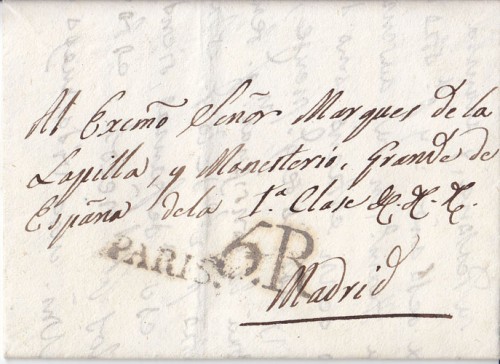 Al Exc̃mo Señor Marques de la
Lapilla, y Monesterio, Grande de
España de la 1.ª Clase &. &. &.
PARIS.
5R
Madrid